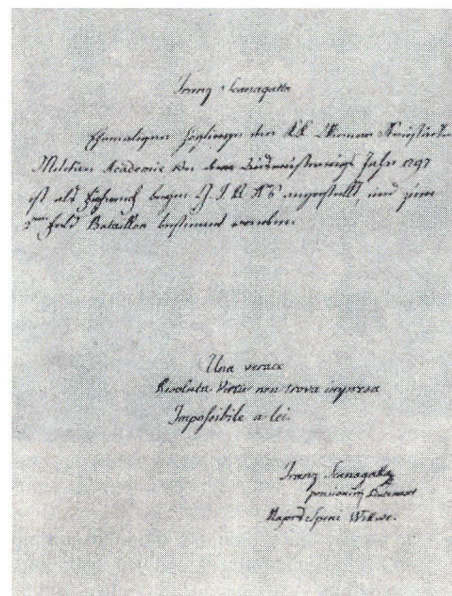 Franz Scanagatta
Ehemaliger Zögling der KK Wiener Neustädter
Militär Academie von dem Jahr 1797
ist als Fähnrich beym G. I. B. N 6 angestellt, und zum
Feld Bataillon bestimmt worden.
Una verace
Risoluta Virtù non trova impresa
Impossibile a lei.
Franz Scanagatta
Major Spini Wittwe.